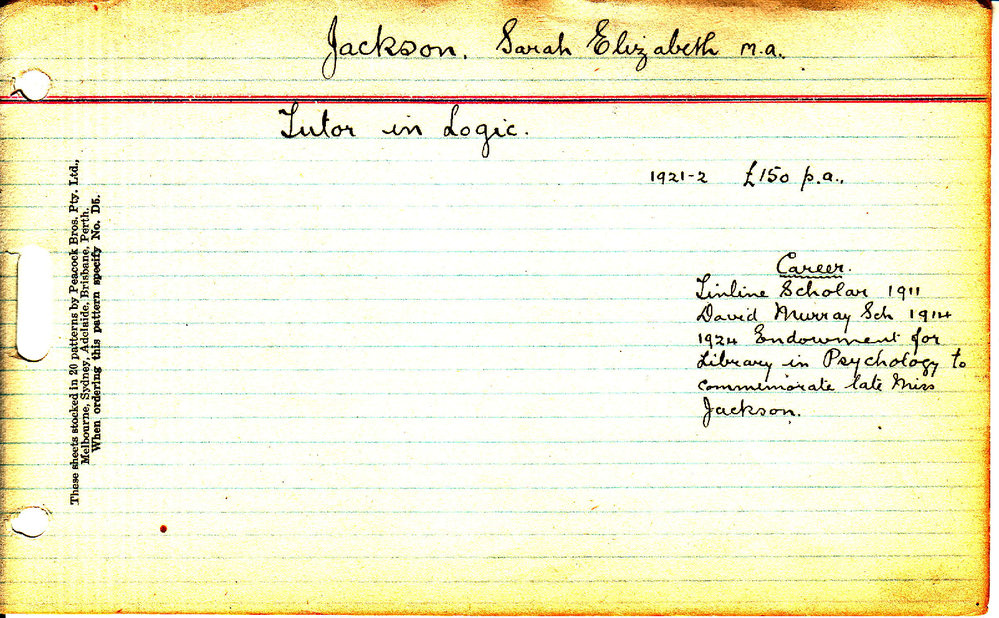 Jackson. Sarah Elizabeth M.A.
Tutor in Logic.
1921-2 £150 p.a.
Career.
Tinline Scholar 1911
David Murray Sch 1914
1924 Endowment for
Library in Psychology to
commemorate late Miss
Jackson.
These sheets stocked in 20 patterns by Peacock Bros. Pty. Ltd.,
Melbourne, Sydney, Adelaide, Brisbane, Perth.
When ordering this pattern specify No. D5.